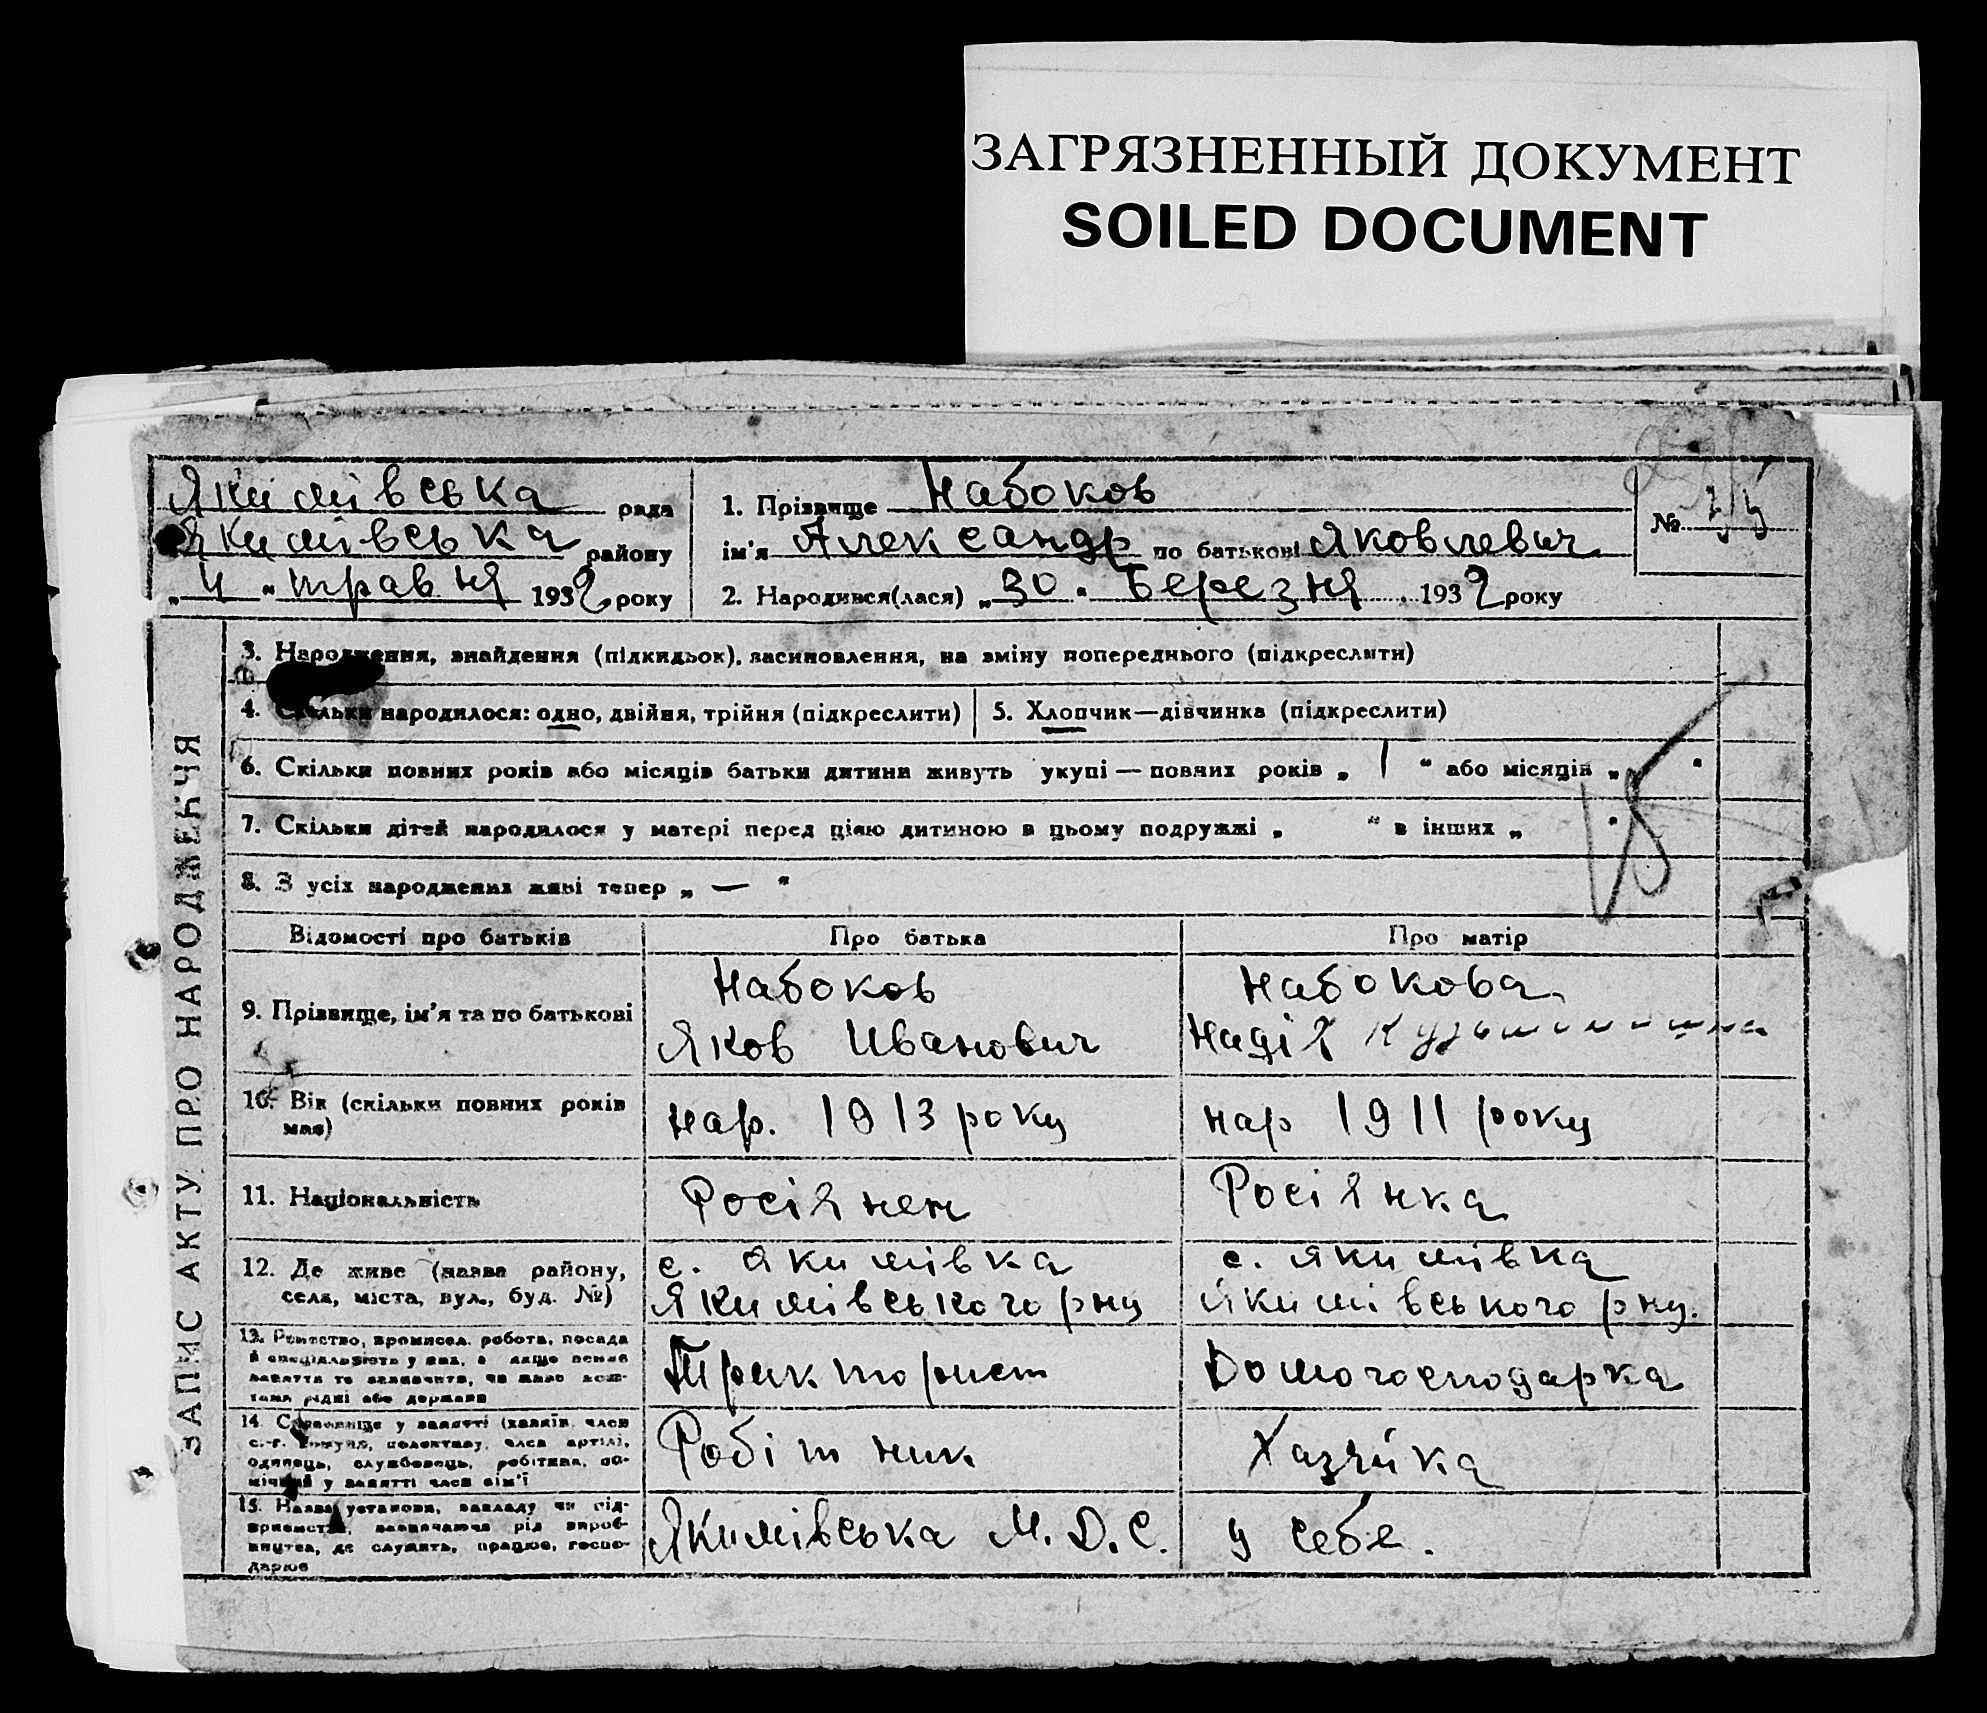 ЗАГРЯЗНЕННЫЙ ДОКУМЕНТ
SOILED DOCUMENT
Якимівська рада
Якимівська району
„ 4 “ травня 1932 року
1. Прізвище Набоков
ім'я Александр по батькові Яковлевич
2. Народився(лася) „ 30 “ Березня 1932 року
№
ЗАПИС АКТУ ПРО НАРОДЖЕННЯ
3. Народження, знайдення (підкидьок), засиновлення, на зміну попереднього (підкреслити)
4. Скільки народилося: одно, двійня, трійня (підкреслити)
5. Хлопчик—дівчинка (підкреслити)
6. Скільки повних років або місяців батьки дитини живуть укупі — повних років „ 1 “ або місяців „ “
7. Скільки дітей народилося у матері перед цією дитиною в цьому подружжі „ “ в інших „ “
8. З усіх народжених живі тепер „ — “
Відомості про батьків
Про батька
Про матір
9. Прізвище, ім'я та по батькові
Набоков
Яков Иванович
Набокова
Надія Кузьминишна
10. Вік (скільки повних років має)
нар. 1913 року
нар 1911 року
11. Національність
Росіянен
Росіянка
12. Де живе (назва району,
села, міста, вул., буд. №)
с. Якимівка
Якимівського рну
с. Якимівка
Якимівського рну.
13. Ремество, промисел, робота, посада
й спеціальність у них, а якщо немає
заняття то зазначити, чи живе кош-
тами рідні або держави
Тракторист
Домогосподарка
14. Становище у занятті (хазяїн, член
с.-г. комуни, колективу, член артілі,
одинець, службовець, робітник, по-
мічний у занятті член сім'ї
Робітник
Хазяйка
15. Назва установи, закладу чи під-
приємства, зазначаючи рід вироб-
ництва, де служить, працює, госпо-
дарює
Якимівська М.Д.С.
у себе.